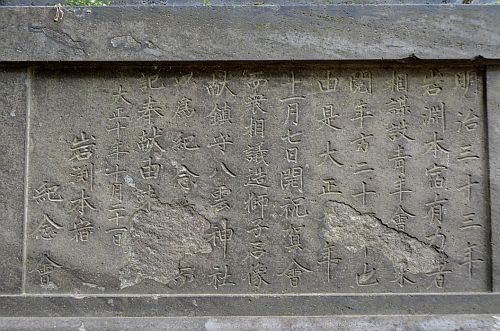 明治三十三年
岩淵本宿有力者
相謀設青年會
閲年方二十 也
由是大正 年
十一月七日開祝賀會
而衆相議造獅子石像
献鎮守八雲神社
以為紀念
記奉献由来
大正十年十月三十一日
岩淵本宿
紀念會